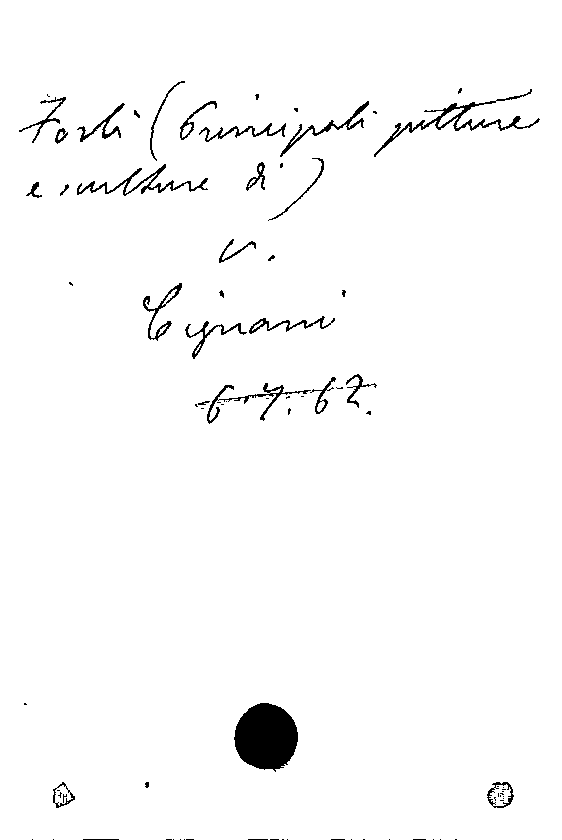 Forlì (Principali pitture
e sculture di)
v.
Cignani
6.7.62.